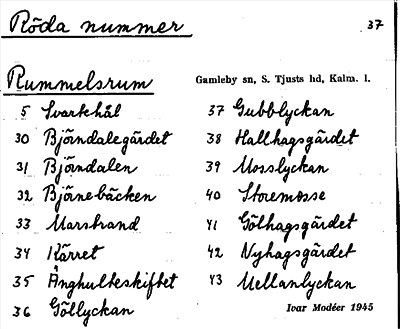 Röda nummer
37
Rummelsrum
Gamleby sn, S. Tjusts hd, Kalm. l.
5 Svartehål
30 Björndalegärdet
31 Björndalen
32 Björnebäcken
33 Marstrand
34 Kärret
35 Änghulteskiftet
36 Göllyckan
37 Gubblyckan
38 Hallhagsgärdet
39 Mosslyckan
40 Storemosse
41 Gölhagsgärdet
42 Nyhagsgärdet
43 Mellanlyckan
Ivar Modéer 1945